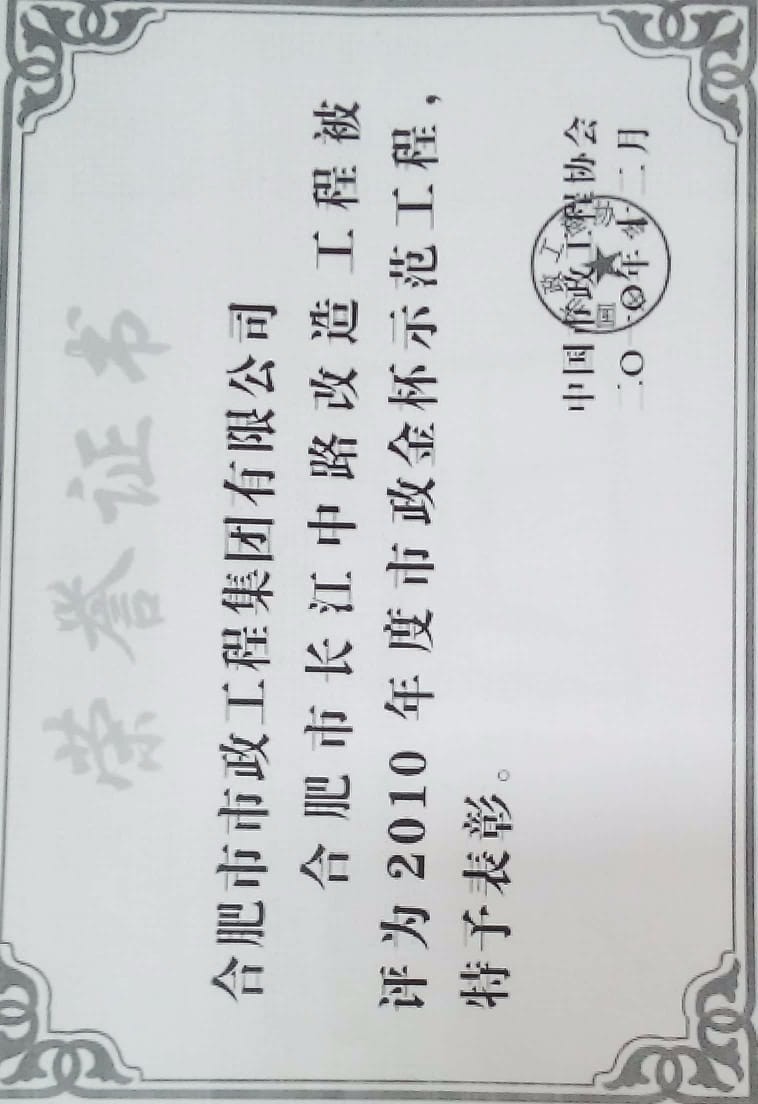 荣誉证书
合肥市市政工程集团有限公司
合肥市长江中路改造工程被
评为2010年度市政金杯示范工程，
特予表彰。
中国市政工程协会
二〇一〇年十二月